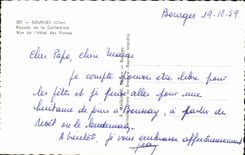 207 - BOURGES (Cher)
Façade de la Cathédrale
Vue de l'Hôtel des Postes
Bourges 19.12.59
Cher Papa, chère Maman
Je compte pouvoir être libre pour
les fêtes et je peux aller pour une
huitaine de jours à, à partir de
Noël ou le lendemain.
A bientôt, je vous embrasse affectueusement